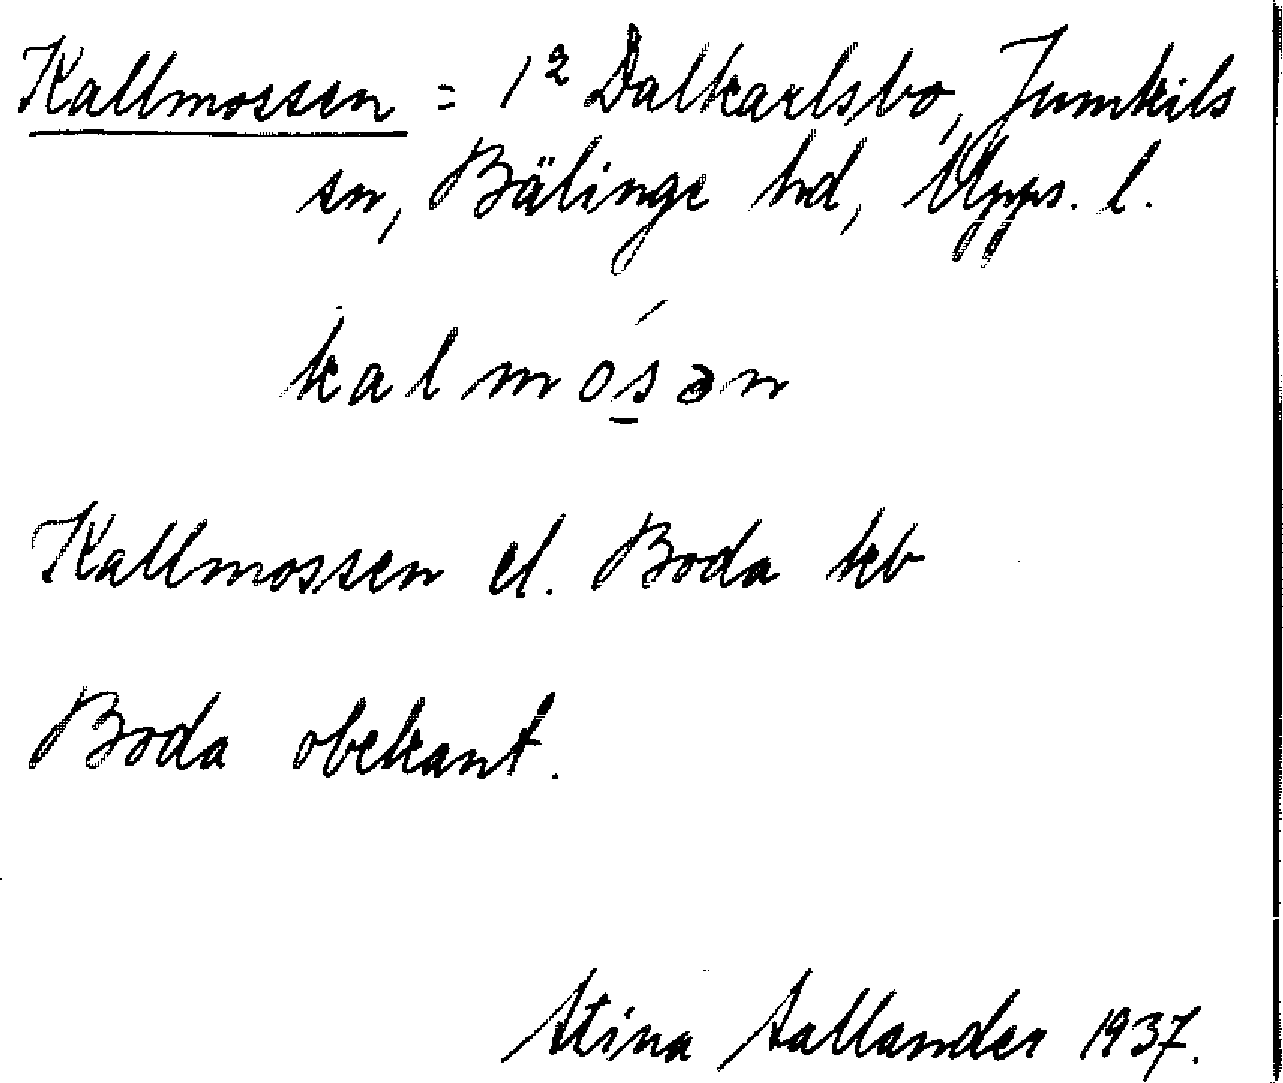 Kallmossen = 1² Dalkarlsbo, Jumkils
sn, Bälinge hd, Upps. l.
kalmósən
Kallmossen el. Boda kb
Boda obekant.
Stina Sallander 1937.